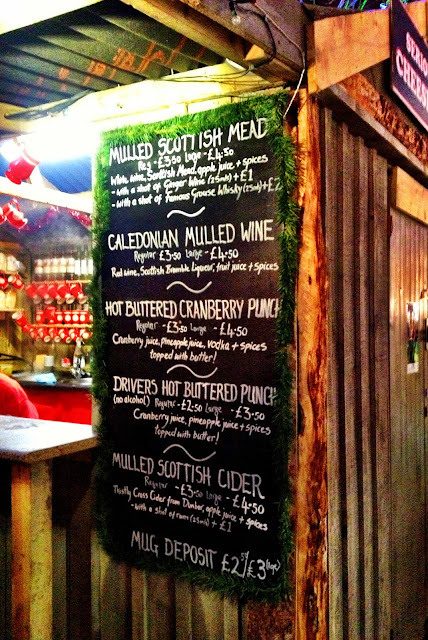 MULLED SCOTTISH MEAD
Reg - £3·50 Large - £4·50
White wine, Scottish Mead, apple juice + spices
- with a shot of Ginger Wine (25ml) + £1
- with a shot of Famous Grouse Whisky (25ml) + £2
CALEDONIAN MULLED WINE
Regular £3·50 Large - £4·50
Red wine, Scottish Bramble Liqueur, fruit juice + spices
HOT BUTTERED CRANBERRY PUNCH
Regular - £3·50 Large - £4·50
Cranberry juice, pineapple juice, vodka + spices
topped with butter!
DRIVERS HOT BUTTERED PUNCH
(no alcohol) Regular - £2·50 Large - £3·50
Cranberry juice, pineapple juice + spices
topped with butter!
MULLED SCOTTISH CIDER
Regular - £3·50 Large - £4·50
Thistly Cross Cider from Dunbar, apple juice + spices
- with a shot of rum (25ml) + £1
MUG DEPOSIT £2 /£3
CHEES